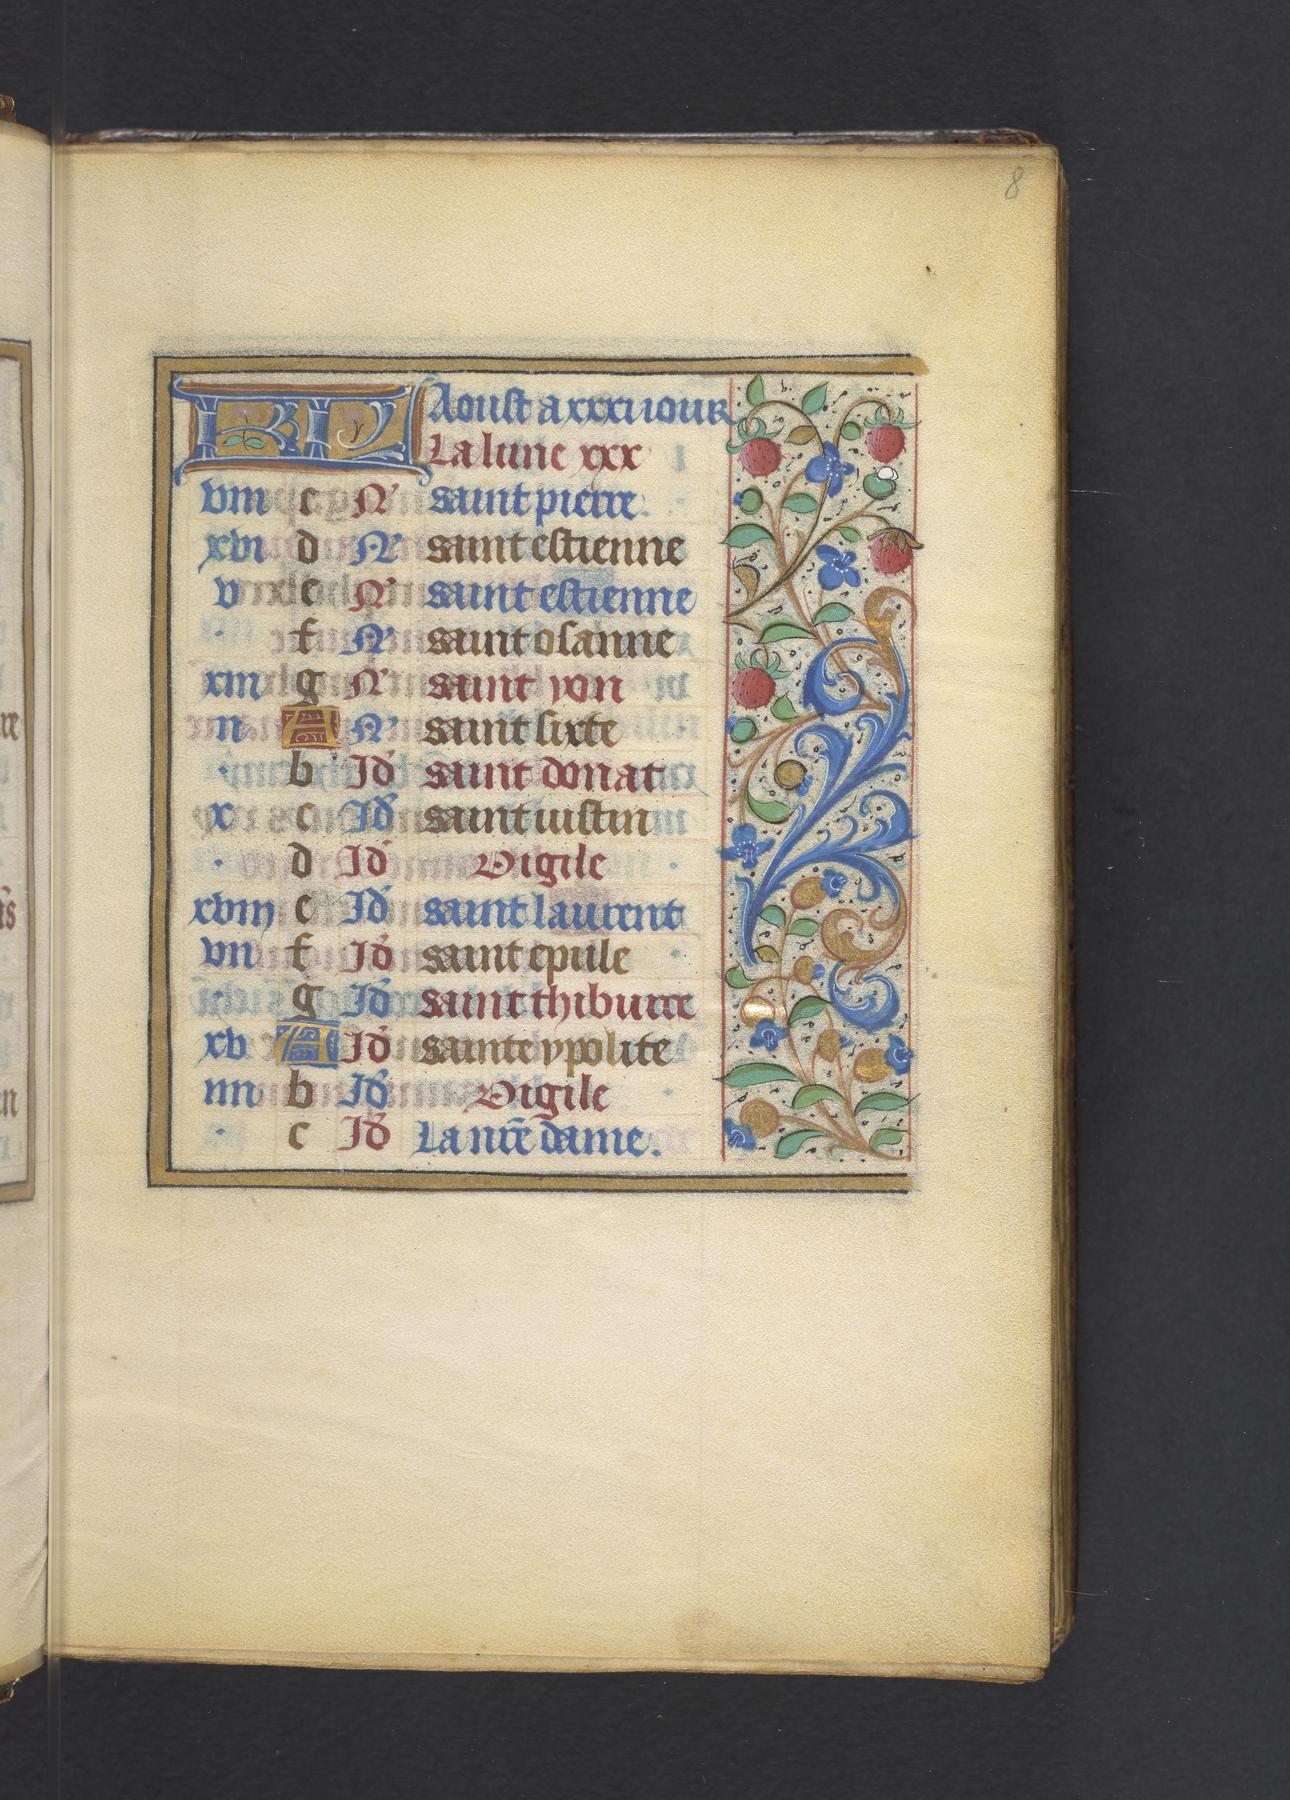 8
KL Aoust a xxxi iour
La lune xxx
viii c N saint pierre
xvi d N saint estienne
v e N saint estienne
f N saint osanne
xiii g N saint yon
ii A N saint sixte
b Id saint donat
x c Id saint iustin
d Id Vigile
xviii e Id saint laurent
vii f Id saint epule
g Id saint thiburce
xv A Id saint ypolite
iiii b Id Vigile
c Id La nre dame.